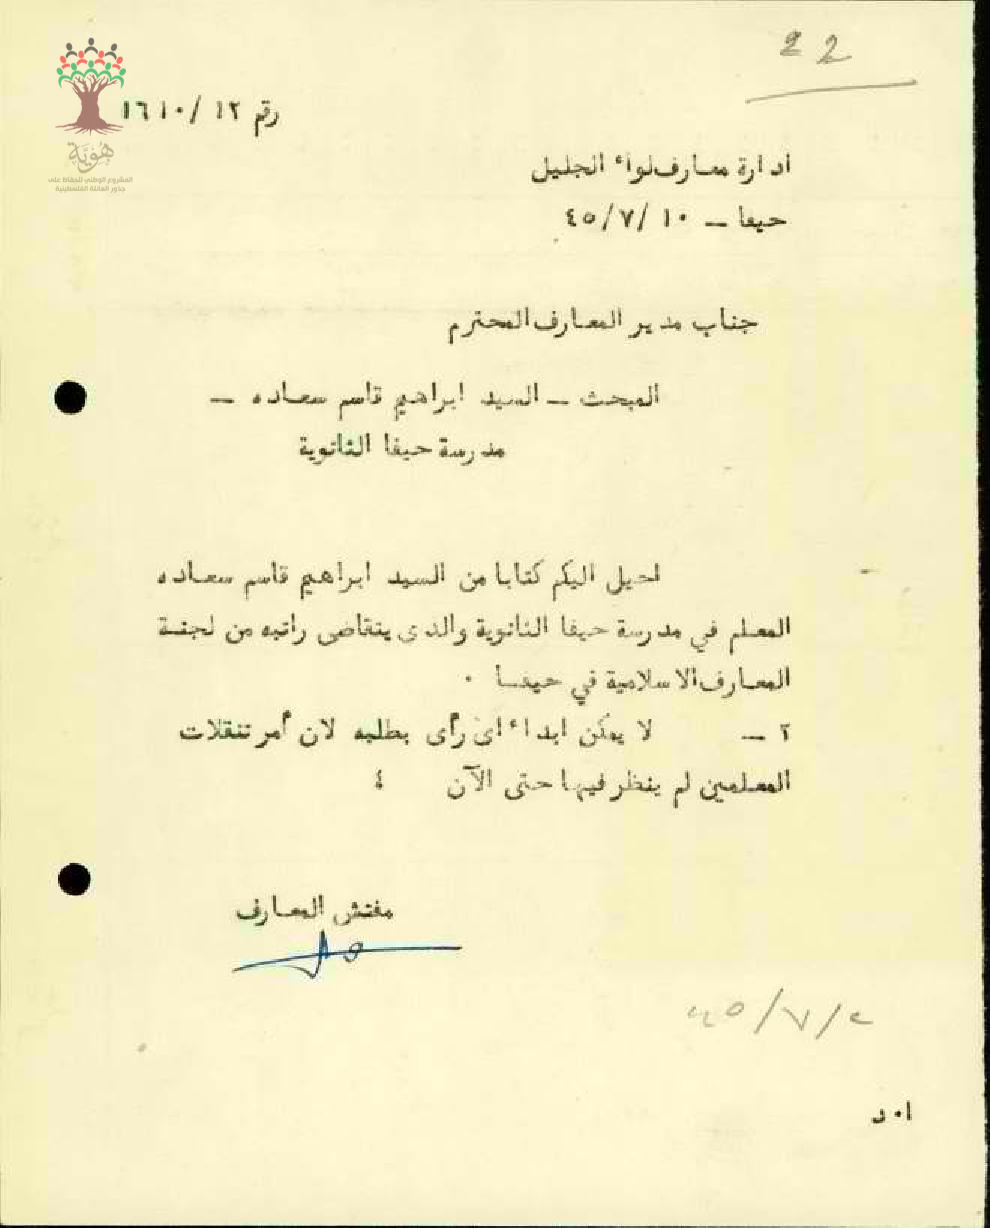 22
رقم ١٢ /١٦١٠
هوية
المشروع الوطني للحفاظ على
جذور العائلة الفلسطينية
أدارة معارف لواء الجليل
حيفا – ١٠ /٤٥/٧
جناب مدير المعارف المحترم
المبحث – السيد ابراهيم قاسم سعاده –
مدرسة حيفا الثانوية
احيل اليكم كتابا من السيد ابراهيم قاسم سعاده
المعلم في مدرسة حيفا الثانوية والذى يتقاضى راتبه من لجنة
المعارف الاسلامية في حيفا ٠
٢ – لا يمكن ابداء اى رأى بطلبه لان أمر تنقلات
المعلمين لم ينظر فيها حتى الآن ٤
مفتش المعارف
ا٠ د